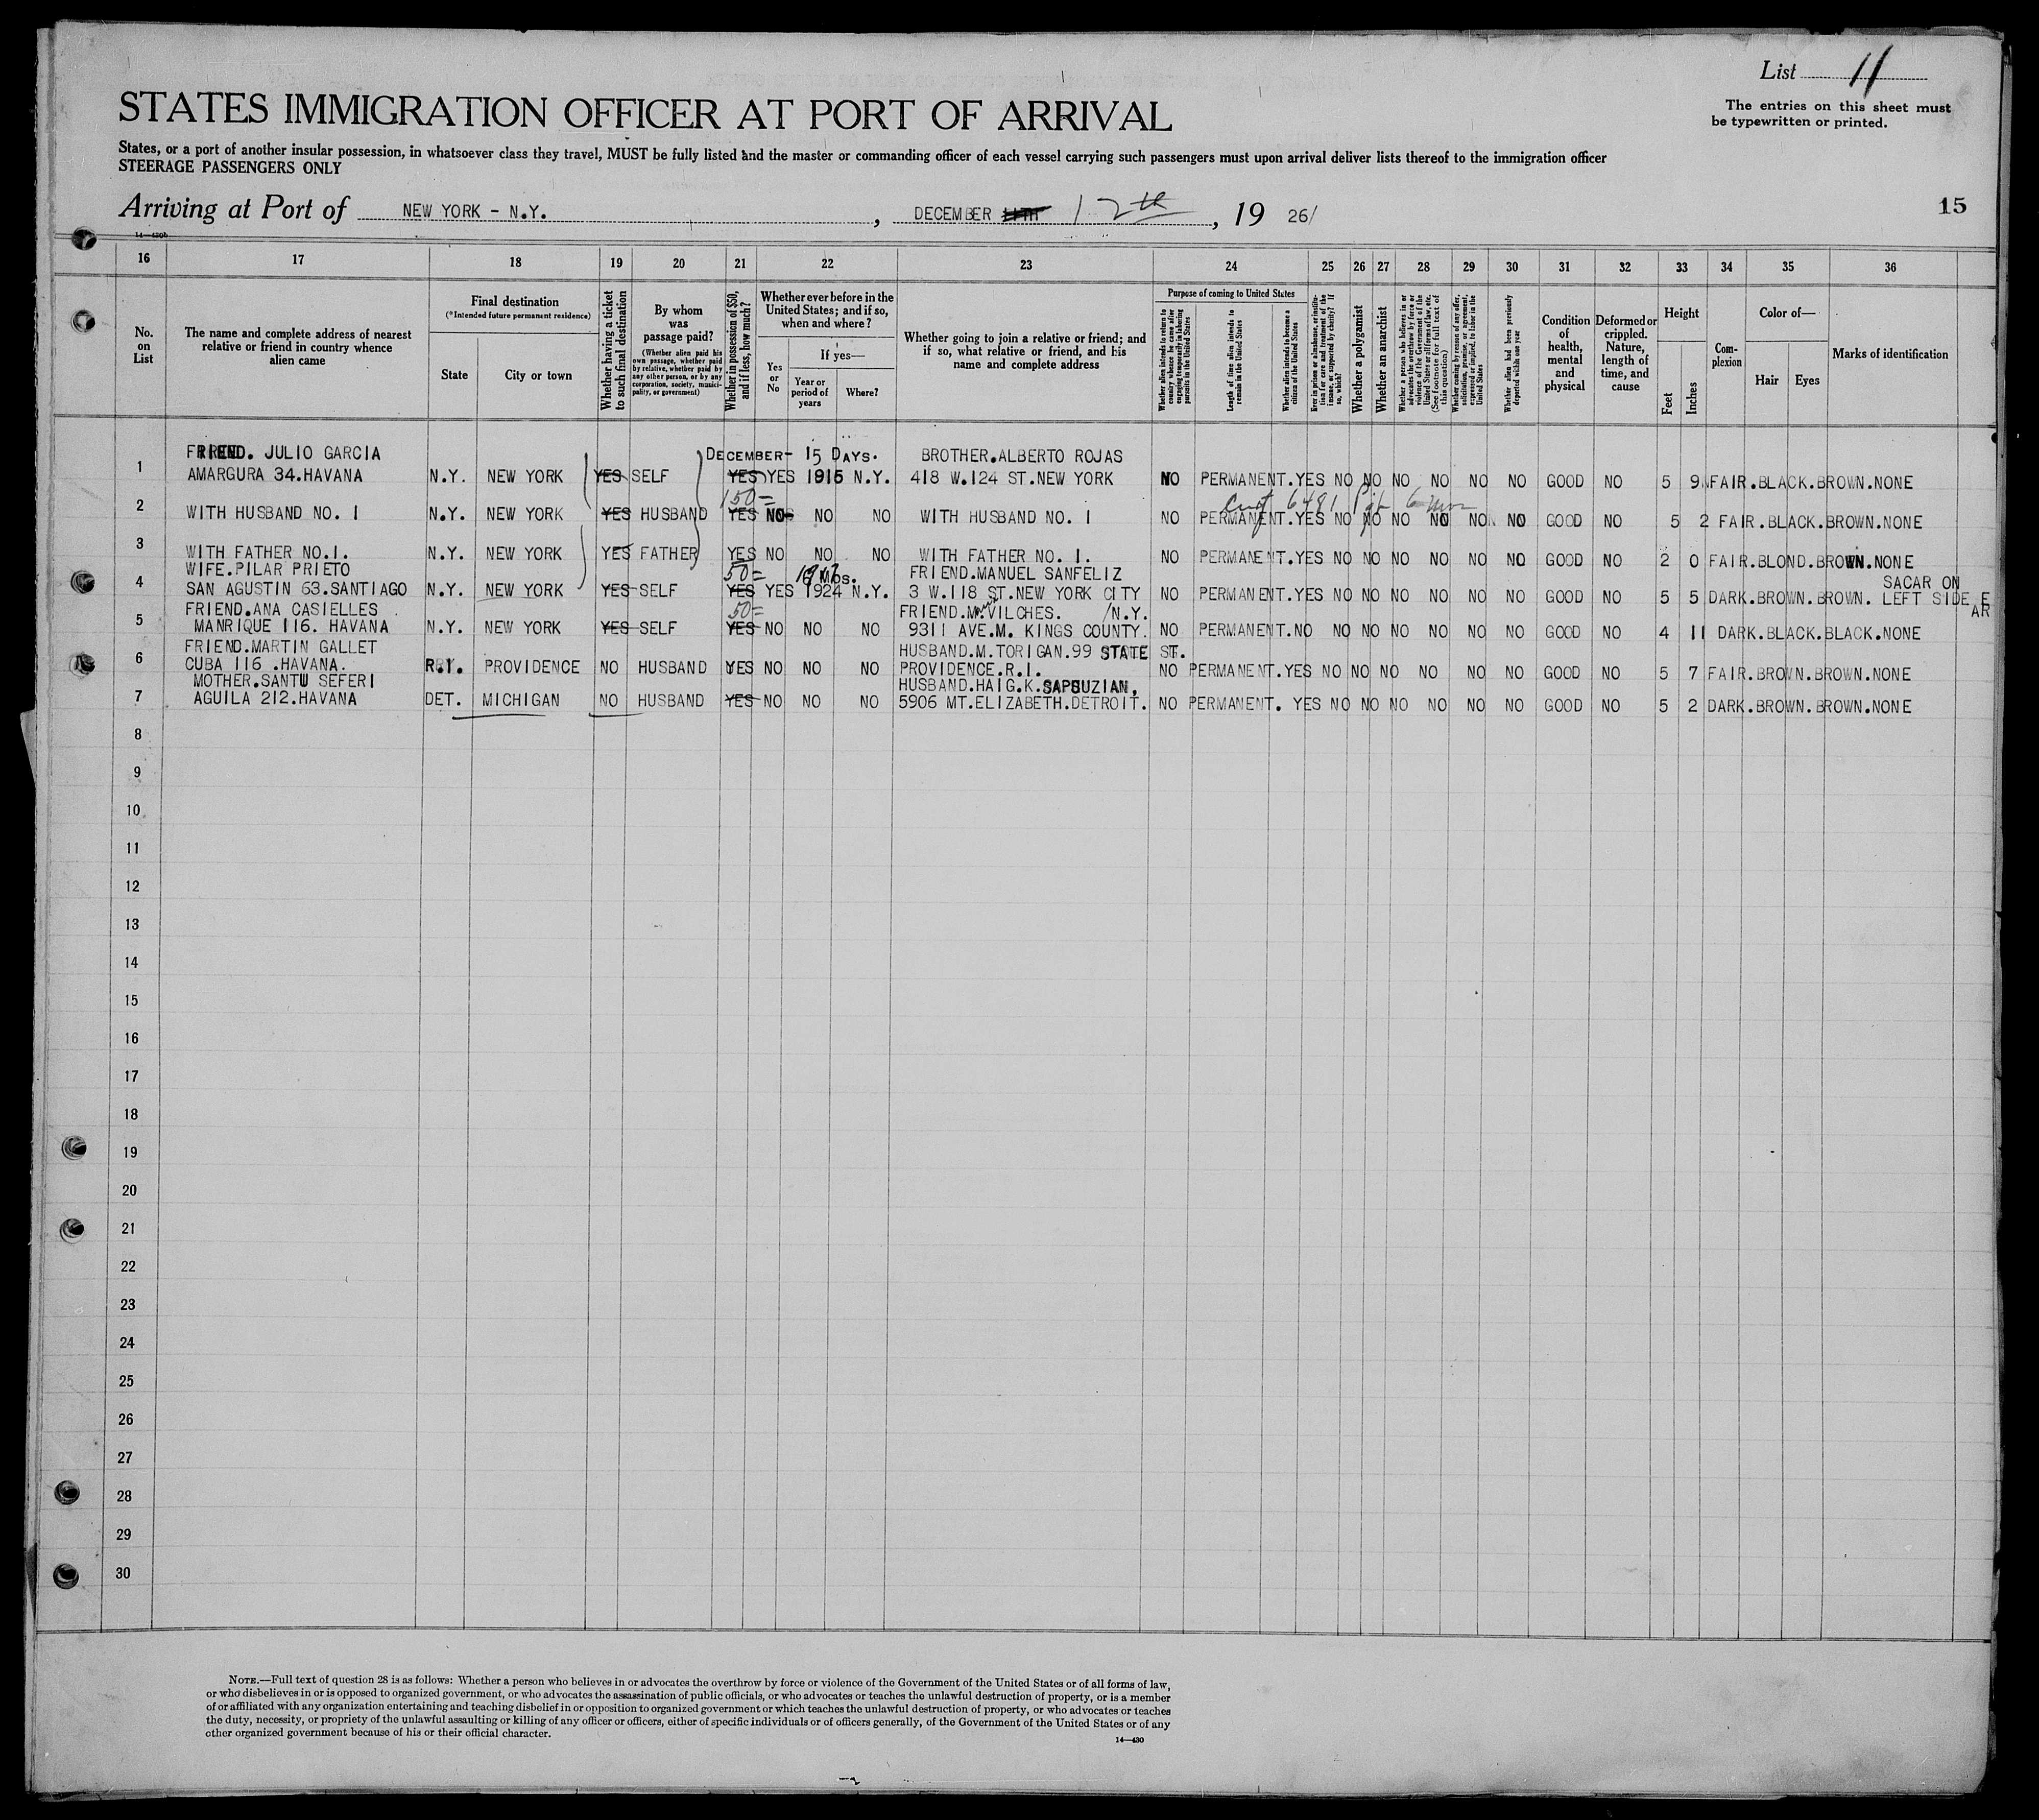 List 11
The entries on this sheet must
be typewritten or printed.
STATES IMMIGRATION OFFICER AT PORT OF ARRIVAL
States, or a port of another insular possession, in whatsoever class they travel, MUST be fully listed and the master or commanding officer of each vessel carrying such passengers must upon arrival deliver lists thereof to the immigration officer
STEERAGE PASSENGERS ONLY
Arriving at Port of NEW YORK - N.Y., DECEMBER 11TH 12th, 19 26/
15
14—430b
16 17 18 19 20 21 22 23 24 25 26 27 28 29 30 31 32 33 34 35 36
No. on List
The name and complete address of nearest relative or friend in country whence alien came
Final destination
(*Intended future permanent residence)
State
City or town
Whether having a ticket to such final destination
By whom was passage paid?
(Whether alien paid his own passage, whether paid by relative, whether paid by any other person, or by any corporation, society, municipality, or government)
Whether in possession of $50, and if less, how much?
Whether ever before in the United States; and if so, when and where?
Yes or No
If yes—
Year or period of years
Where?
Whether going to join a relative or friend; and if so, what relative or friend, and his name and complete address
Purpose of coming to United States
Whether alien intends to return to country whence he came after engaging temporarily in laboring pursuits in the United States
Length of time alien intends to remain in the United States
Whether alien intends to become a citizen of the United States
Ever in prison or almshouse, or institution for care and treatment of the insane, or supported by charity? If so, which?
Whether a polygamist
Whether an anarchist
Whether a person who believes in or advocates the overthrow by force or violence of the Government of the United States or all forms of law, etc. (See footnote for full text of this question)
Whether coming by reason of any offer, solicitation, promise, or agreement, expressed or implied, to labor in the United States
Whether alien had been previously deported within one year
Condition of health, mental and physical
Deformed or crippled. Nature, length of time, and cause
Height
Feet
Inches
Complexion
Color of—
Hair
Eyes
Marks of identification
FRIEND. JULIO GARCIA DECEMBER- 15 DAYS. BROTHER.ALBERTO ROJAS
1 AMARGURA 34.HAVANA N.Y. NEW YORK YES SELF YES YES 1915 N.Y. 418 W.124 ST.NEW YORK NO PERMANENT.YES NO NO NO NO NO NO GOOD NO 5 9 FAIR.BLACK.BROWN.NONE
150=
2 WITH HUSBAND NO. 1 N.Y. NEW YORK YES HUSBAND YES NO NO NO WITH HUSBAND NO. 1 NO PERMANENT.YES NO NO NO NO NO NO GOOD NO 5 2 FAIR.BLACK.BROWN.NONE
3 WITH FATHER NO.1. N.Y. NEW YORK YES FATHER YES NO NO NO WITH FATHER NO. 1. NO PERMANENT.YES NO NO NO NO NO NO GOOD NO 2 0 FAIR.BLOND.BROWN.NONE
WIFE.PILAR PRIETO 50= MOS. FRIEND.MANUEL SANFELIZ SACAR ON
4 SAN AGUSTIN 63.SANTIAGO N.Y. NEW YORK YES SELF YES YES 1924 N.Y. 3 W.118 ST.NEW YORK CITY NO PERMANENT.YES NO NO NO NO NO NO GOOD NO 5 5 DARK.BROWN.BROWN. LEFT SIDE EAR
FRIEND.ANA CASIELLES 50= FRIEND.M.VILCHES. /N.Y.
5 MANRIQUE 116. HAVANA N.Y. NEW YORK YES SELF YES NO NO NO 9311 AVE.M. KINGS COUNTY. NO PERMANENT.NO NO NO NO NO NO NO GOOD NO 4 11 DARK.BLACK.BLACK.NONE
FRIEND.MARTIN GALLET HUSBAND.M.TORIGAN.99 STATE ST.
6 CUBA 116 .HAVANA. R.I. PROVIDENCE NO HUSBAND YES NO NO NO PROVIDENCE.R.I. NO PERMANENT.YES NO NO NO NO NO NO GOOD NO 5 7 FAIR.BROWN.BROWN.NONE
MOTHER.SANTU SEFERI HUSBAND.HAIG.K.SAPSUZIAN,
7 AGUILA 212.HAVANA DET. MICHIGAN NO HUSBAND YES NO NO NO 5906 MT.ELIZABETH.DETROIT. NO PERMANENT. YES NO NO NO NO NO NO GOOD NO 5 2 DARK.BROWN.BROWN.NONE
8
9
10
11
12
13
14
15
16
17
18
19
20
21
22
23
24
25
26
27
28
29
30
NOTE.—Full text of question 28 is as follows: Whether a person who believes in or advocates the overthrow by force or violence of the Government of the United States or of all forms of law,
or who disbelieves in or is opposed to organized government, or who advocates the assassination of public officials, or who advocates or teaches the unlawful destruction of property, or is a member
of or affiliated with any organization entertaining and teaching disbelief in or opposition to organized government or which teaches the unlawful destruction of property, or who advocates or teaches
the duty, necessity, or propriety of the unlawful assaulting or killing of any officer or officers, either of specific individuals or of officers generally, of the Government of the United States or of any
other organized government because of his or their official character.
14—430